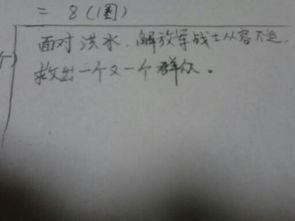 = 8(圈)
面对洪水,解放军战士从容不迫
救出一个又一个群众。